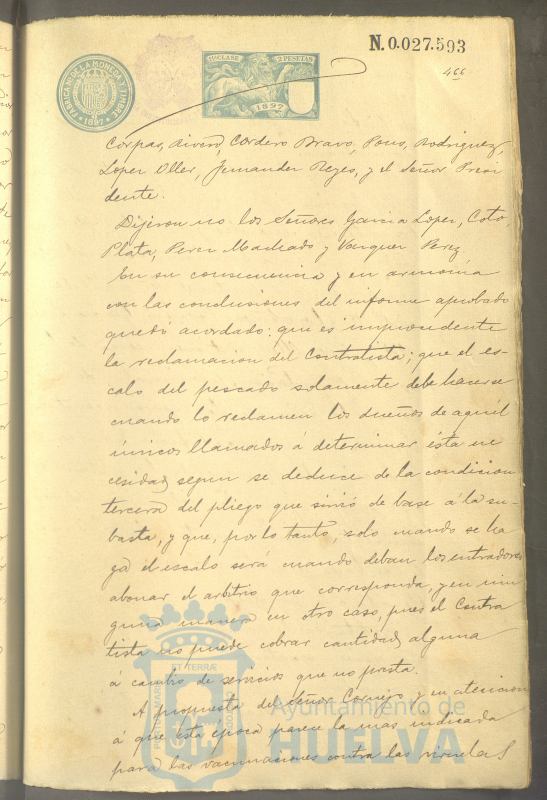 N.0.027.593
466
FABRICA N. DE LA MONEDA Y TIMBRE
1897
11ª CLASE 2 PESETAS
1897
Corpas, Rivero, Cordero Bravo, Pons, Rodriguez,
Lopez Oller, Fernandez Reyes, y el Señor Presi
dente.
Dijeron no los Señores Garcia Lopez, Coto
Plata, Perez Machado y Vazquez Perez
En su consecuencia y en armonia
con las conclusiones del informe aprobado
quedó acordado: que es improcedente
la reclamacion del Contratista; que el es-
calo del pescado solamente debe hacerse
cuando lo reclamen los dueños de aquél
únicos llamados á determinar ésta ne
cesidad, segun se deduce de la condicion
tercera del pliego que sirvió de base á la su-
basta, y que, por lo tanto, solo cuando se ha
ga el escalo será cuando deban los entradores
abonar el arbitrio que corresponda, y en nin
guna manera en otro caso, pues el Contra
tista no puede cobrar cantidad alguna
á cambio de servicios que no presta.
A propuesta del Señor Cornejo y en atencion
á que esta época parece la mas indicada
para las vacunaciones contra las viruelas
Ayuntamiento de
HUELVA